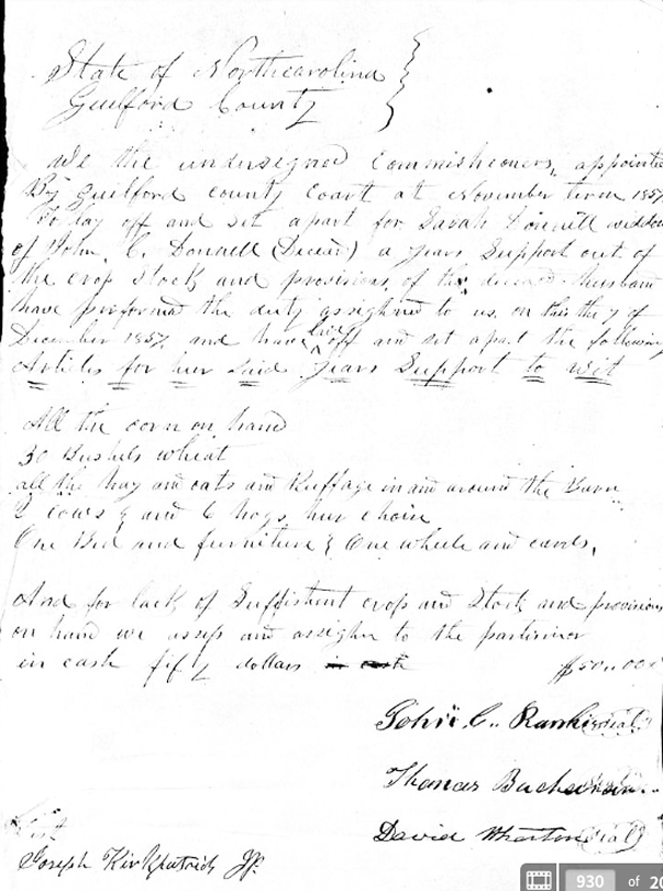 State of Northcarolina
Guilford County
We the undersigned Commisheoners, appointed
By guilford county Coart at November term 1857
To lay off and set apart for Sarah Donnell widdow
of John C. Donnell (Decear) a years Support out of
the crop stock and provisions, of the deceased husband
have performed the duty assighned to us on this the 7 of
December 1857 and have laid off and set apart the following
Articles for her said years Support to wit
All the corn on hand
30 Bushels wheat
all the hay and oats and Ruffage in and around the Barn
2 cows & and 6 hogs her choice
One Bed and furniture & One wheele and cards,
And for lack of Suffishent crop and Stock and provisions
on hand we assess and assighn to the partisinor
in cash fifty dollars in cash
$50.00
John C. Rankin seal
Thomas
David Wharton seal
Test
Joseph Kirkpatrick JP.
930 of 20